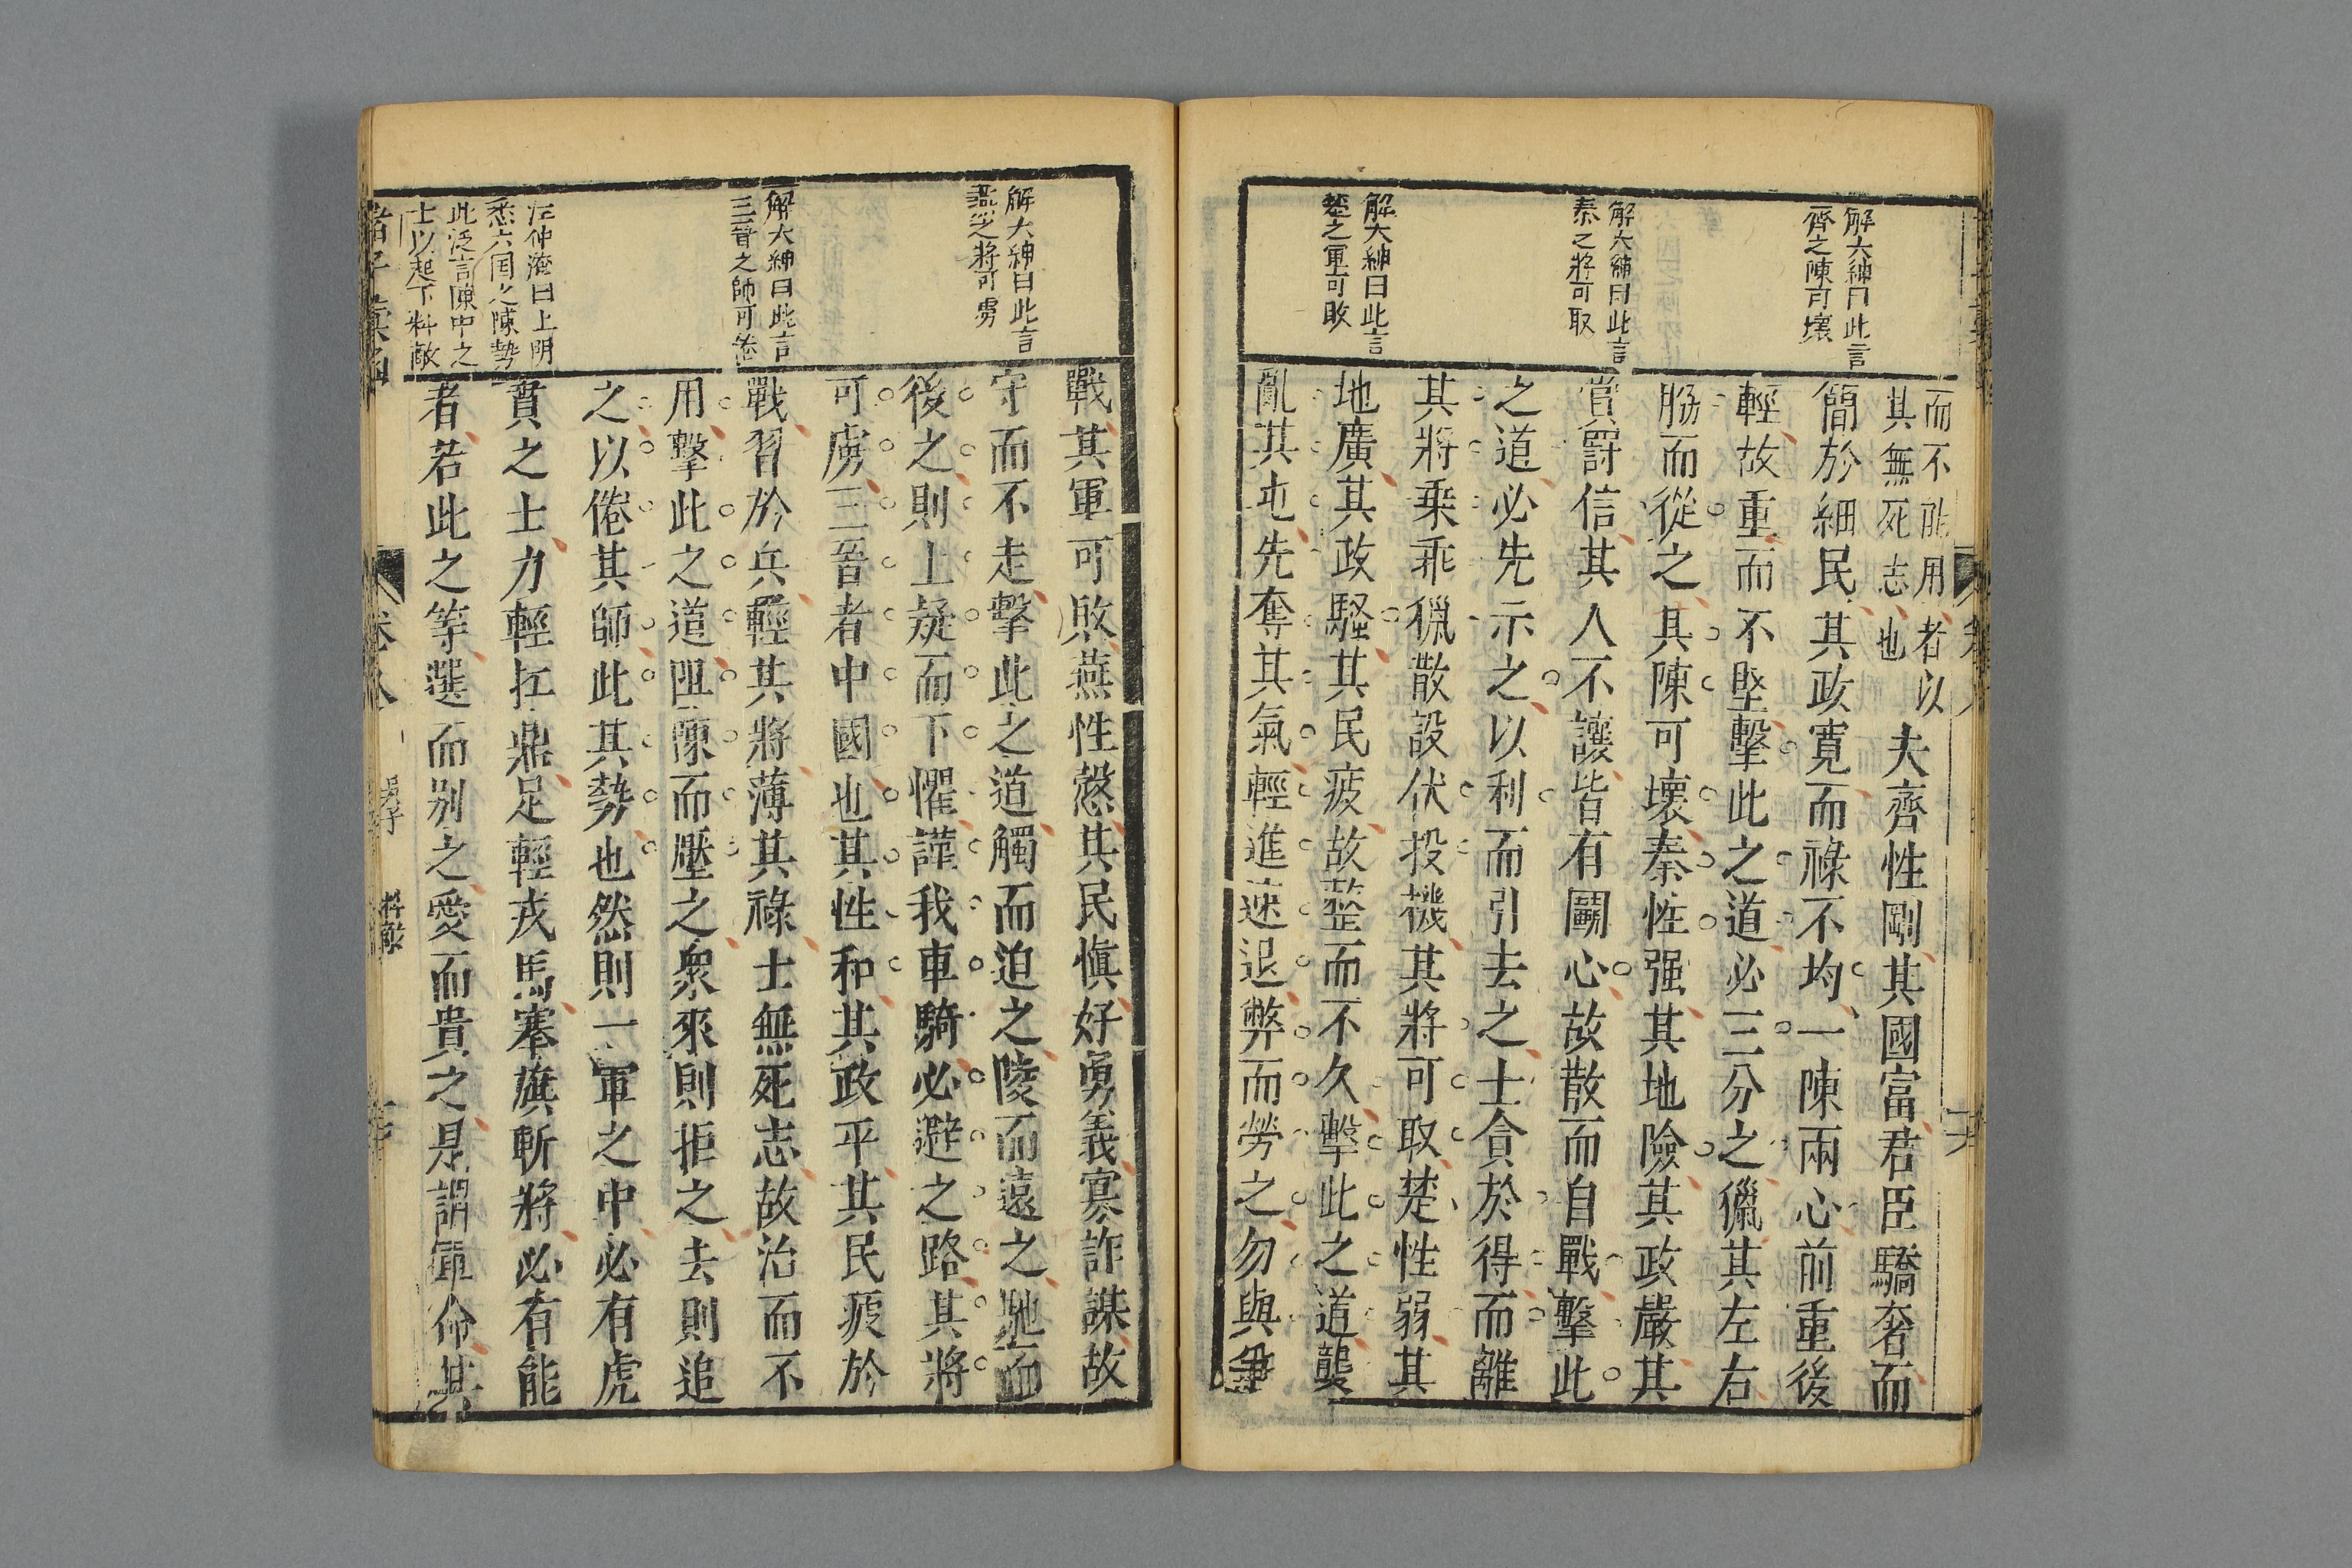 解大紳曰此言
齊之陳可壞
解大紳曰此言
秦之將可取
解大紳曰此言
楚之軍可敗
而不能用者以
其無死志也
夫齊性剛其國富君臣驕奢而
簡於細民其政寬而祿不均一陳兩心前重後
輕故重而不堅擊此之道必三分之獵其左右
脇而從之其陳可壞秦性强其地險其政嚴其
賞罸信其人不讓皆有鬬心故散而自戰擊此
之道必先示之以利而引去之士貪於得而離
其將乗乖獵散設伏投機其將可取楚性弱其
地廣其政騷其民疲故整而不久擊此之道襲
亂其屯先奪其氣輕進速退弊而勞之勿與爭
解大紳曰此言
燕之將可虜
解大紳曰此言
三晉之師可倦
汪仲淹曰上明
悉六国之陳勢
此泛言陳中之
士以起下料敵
戰其軍可敗燕性慤其民慎好勇義寡詐謀故
守而不走擊此之道觸而迫之陵而遠之馳而
後之則上疑而下懼謹我車騎必避之路其將
可虜三晉者中國也其性和其政平其民疲於
戰習於兵輕其將薄其祿士無死志故治而不
用擊此之道阻陳而壓之衆來則拒之去則追
之以倦其師此其勢也然則一軍之中必有虎
賁之士力輕扛鼎足輕戎馬搴旗斬將必有能
者若此之等選而别之愛而貴之是謂軍命其
卷八
吳子
料敵